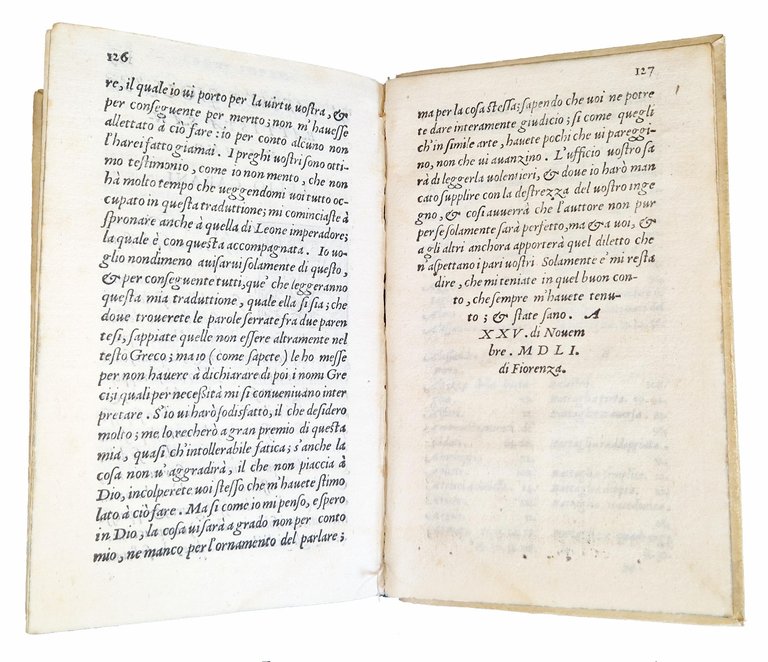 126
re, il quale io ui porto per la uirtu uostra, &
per conseguente per merito; non m'hauesse
allettato à ciò fare: io per conto alcuno non
l'harei fatto giamai. I preghi uostri sono otti-
mo testimonio, come io non mento, che non
hà molto tempo che ueggendomi uoi tutto oc-
cupato in questa traduttione; mi cominciaste à
spronare anche à quella di Leone imperadore;
la quale è con questa accompagnata. Io uo-
glio nondimeno auisarui solamente di questo,
& per conseguente tutti, que' che leggeranno
questa mia traduttione, quale ella si sia; che
doue trouerete le parole serrate fra due paren
tesi, sappiate quelle non essere altramente nel
testo Greco; ma io (come sapete) le ho messe
per non hauere à dichiarare di poi i nomi Gre
ci; i quali per necessità mi si conueniuano inter
pretare. S'io ui harò sodisfatto, il che desidero
molto; me lo recherò a gran premio di questa
mia, quasi ch'intollerabile fatica; s'anche la
cosa non u' aggradirà, il che non piaccia à
Dio, incolperete uoi stesso che m'hauete stimo
lato à ciò fare. Ma si come io mi penso, e spero
in Dio, la cosa ui sarà a grado non per conto
mio, ne manco per l'ornamento del parlare;
127
ma per la cosa stessa; sapendo che uoi ne potre
te dare interamente giudicio; si come quegli
ch'in simile arte, hauete pochi che ui pareggi-
no, non che ui auanzino. L'ufficio uostro sa
rà di leggerla uolentieri, & doue io harò man
cato supplire con la destrezza del uostro inge
gno, & cosi auuerrà che l'auttore non pur
per se solamente sarà perfetto, ma & a uoi, &
a gli altri anchora apporterà quel diletto che
n'aspettano i pari uostri Solamente e' mi resta
dire, che mi teniate in quel buon con-
to, che sempre m'hauete tenu-
to; & state sano. A
XXV. di Nouem
bre. MDLI.
di Fiorenza.